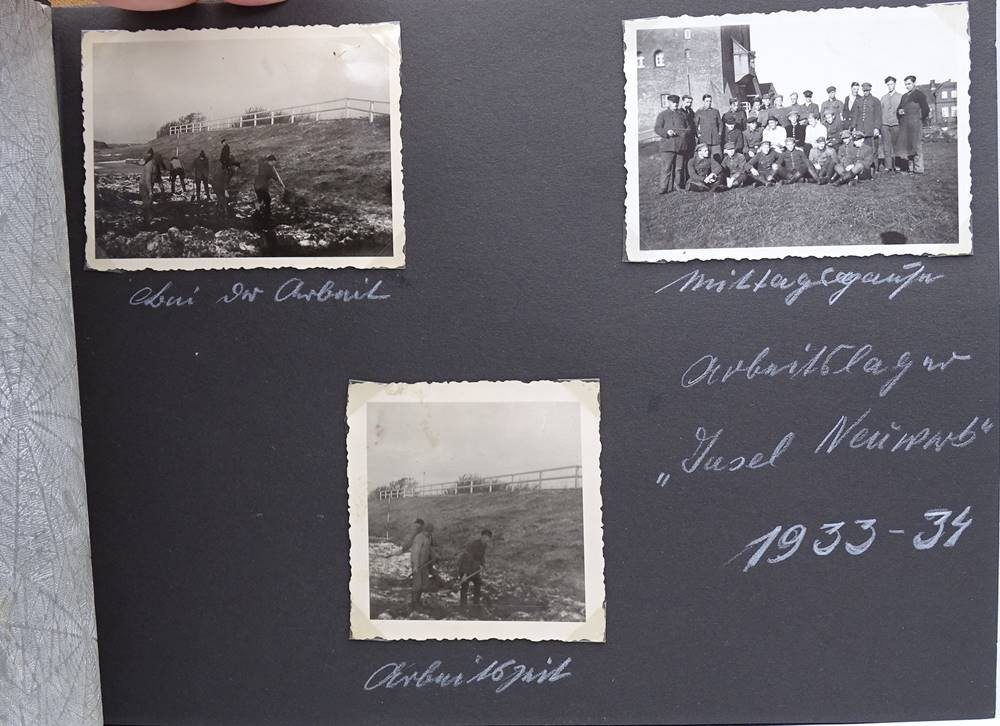 Bei der Arbeit
Mittagspause
Arbeitslager
„Insel Neuwerk“
1933-34
Arbeitszeit